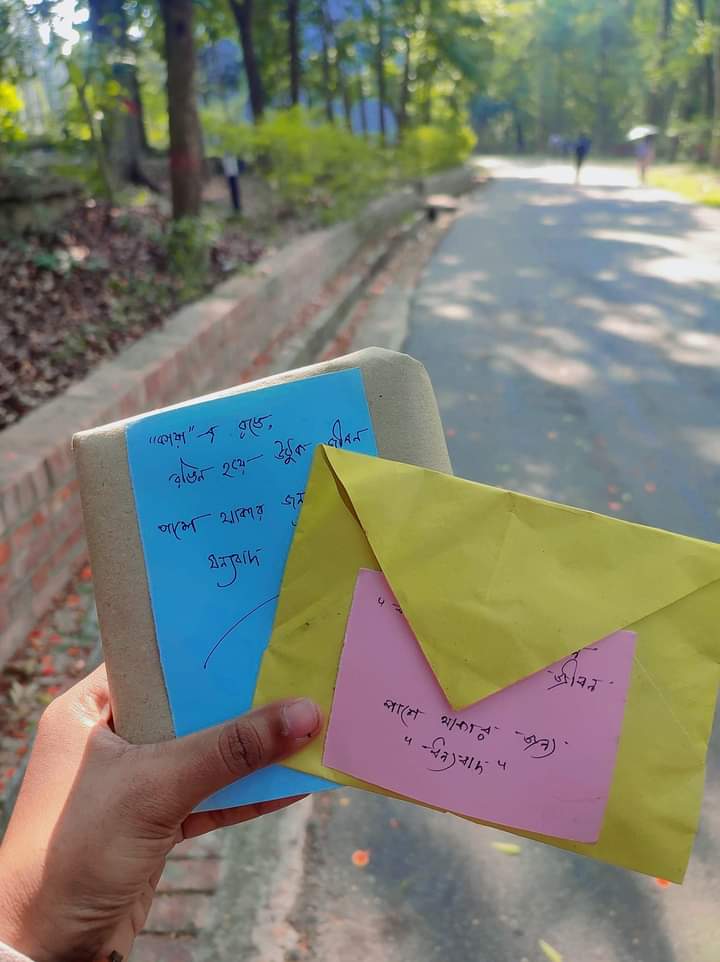 রঙিন হয়ে উঠুক জীবন
পাশে থাকার জন্য
ধন্যবাদ
জীবন
পাশে থাকার জন্য
"ধন্যবাদ"